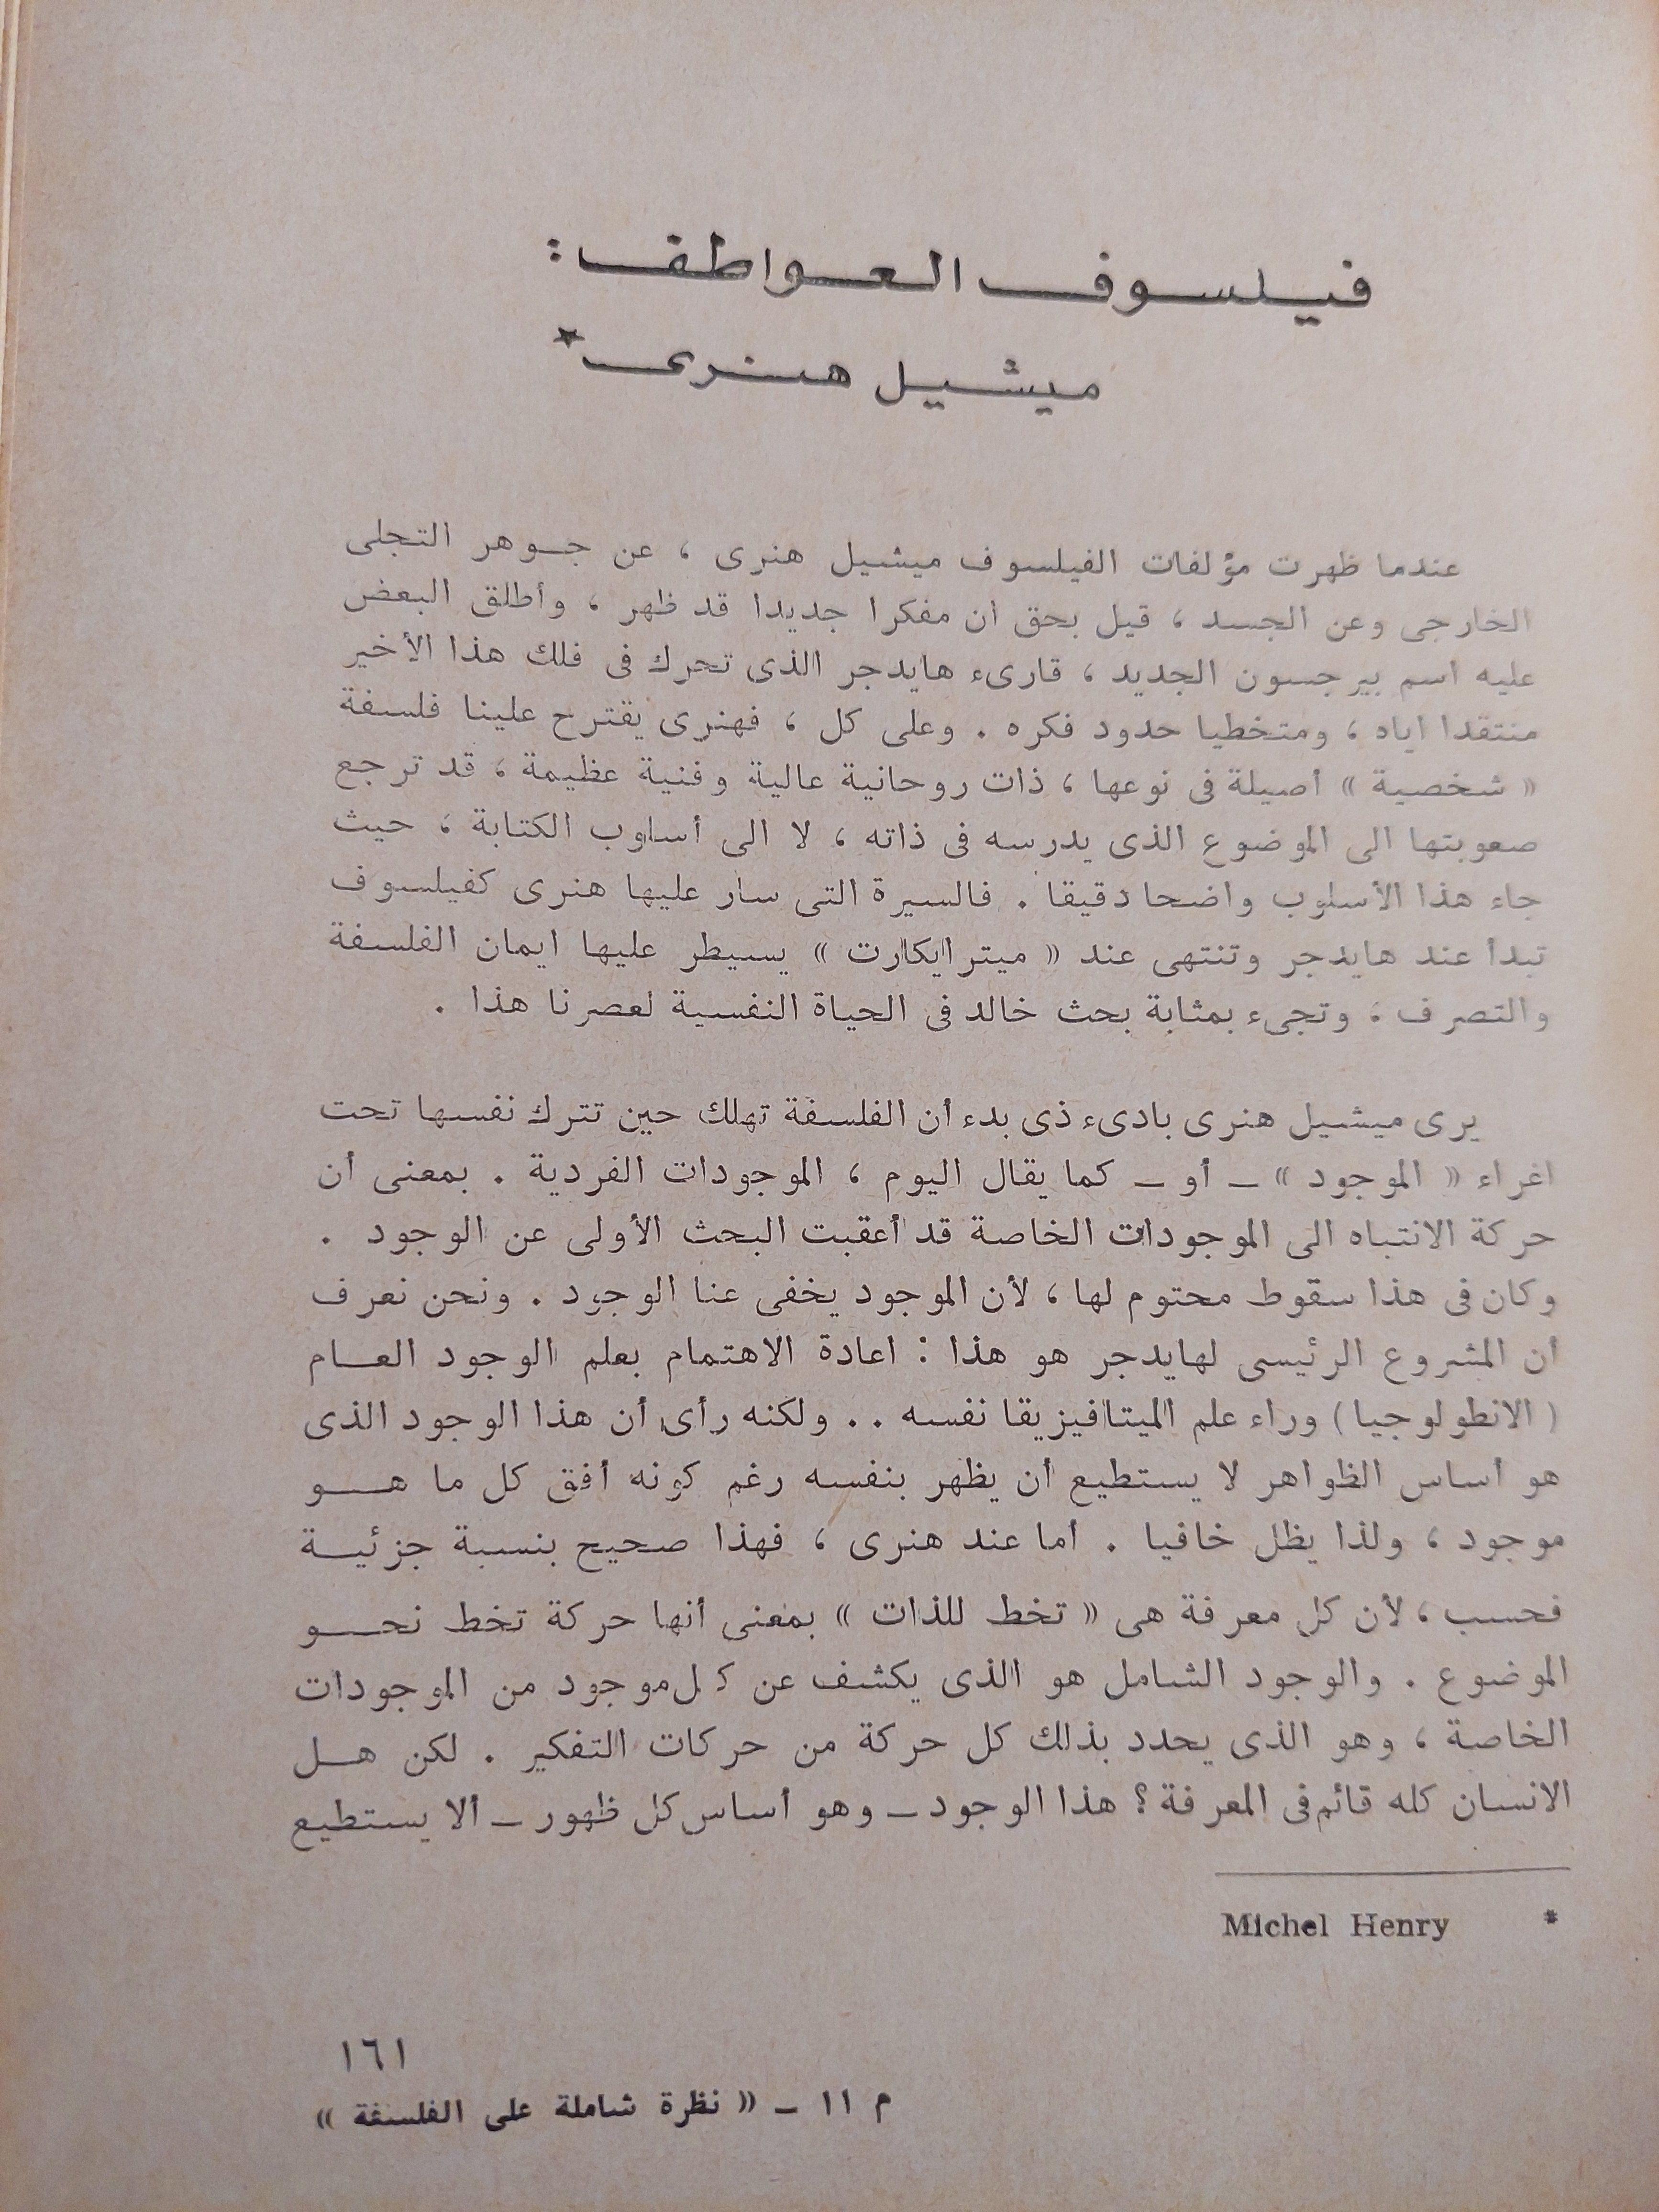 فيلسوف العواطف :
ميشيل هنرى *
عندما ظهرت مؤلفات الفيلسوف ميشيل هنرى ، عن جوهر التجلى
الخارجى وعن الجسد ، قيل بحق ان مفكرا جديدا قد ظهر ، وأطلق البعض
عليه اسم بيرجسون الجديد ، قارىء هايدجر الذى تحرك فى فلك هذا الأخير
منتقدا اياه ، ومتخطيا حدود فكره . وعلى كل ، فهنرى يقترح علينا فلسفة
« شخصية » أصيلة فى نوعها ، ذات روحانية عالية وفنية عظيمة ، قد ترجع
صعوبتها الى الموضوع الذى يدرسه فى ذاته ، لا الى أسلوب الكتابة ، حيث
جاء هذا الأسلوب واضحا دقيقا . فالسيرة التى سار عليها هنرى كفيلسوف
تبدأ عند هايدجر وتنتهى عند « ميترايكارت » يسيطر عليها ايمان الفلسفة
والتصرف ، وتجىء بمثابة بحث خالد فى الحياة النفسية لعصرنا هذا .
يرى ميشيل هنرى بادىء ذى بدء أن الفلسفة تهلك حين تترك نفسها تحت
اغراء « الموجود » – أو – كما يقال اليوم ، الموجودات الفردية . بمعنى أن
حركة الانتباه الى الموجودات الخاصة قد أعقبت البحث الأولى عن الوجود .
وكان فى هذا سقوط محتوم لها ، لأن الموجود يخفى عنا الوجود . ونحن نعرف
أن المشروع الرئيسى لهايدجر هو هذا : اعادة الاهتمام بعلم الوجود العام
( الانطولوجيا ) وراء علم الميتافيزيقا نفسه . . ولكنه رأى أن هذا الوجود الذى
هو أساس الظواهر لا يستطيع أن يظهر بنفسه رغم كونه أفق كل ما هو
موجود ، ولذا يظل خافيا . أما عند هنرى ، فهذا صحيح بنسبة جزئية
فحسب ، لأن كل معرفة هى « تخط للذات » بمعنى أنها حركة تخط نحو
الموضوع . والوجود الشامل هو الذى يكشف عن كل موجود من الموجودات
الخاصة ، وهو الذى يحدد بذلك كل حركة من حركات التفكير . لكن هل
الانسان كله قائم فى المعرفة ؟ هذا الوجود – وهو أساس كل ظهور – ألا يستطيع
* Michel Henry
١٦١
م ١١ – « نظرة شاملة على الفلسفة »